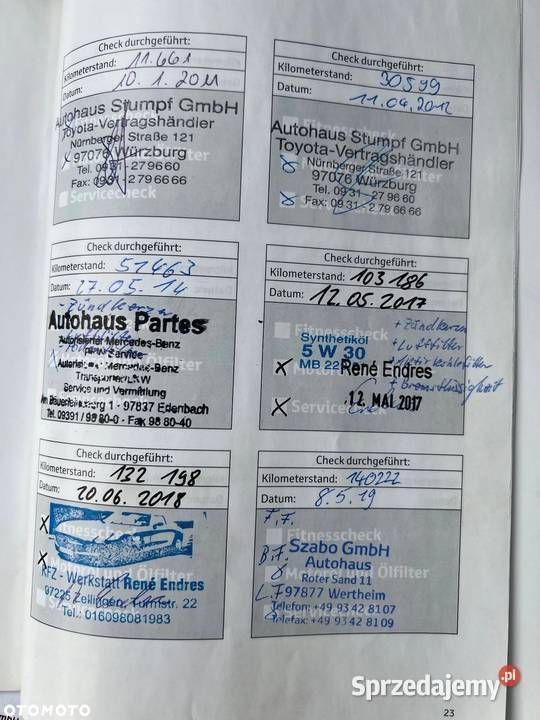 Check durchgeführt:
Kilometerstand: 11.661
Datum: 10.1.2011
Autohaus Stumpf GmbH
Toyota-Vertragshändler
Nürnberger Straße 121
97076 Würzburg
Tel. 0931-27 96 60
Fax: 0931-2 79 66 66
Servicecheck
Check durchgeführt:
Kilometerstand: 30599
Datum: 11.04.2012
Autohaus Stumpf GmbH
Toyota-Vertragshändler
Nürnberger Straße 121
97076 Würzburg
Tel. 09 31 - 27 96 60
Fax: 09 31 - 2 79 66 66
Check durchgeführt:
Kilometerstand: 51463
Datum: 27.05.14
- Zündkerzen
Autohaus Partes
Autorisierter Mercedes-Benz
PKW Service
Autorisierter Mercedes-Benz
Transporter/LKW
Service und Vermittlung
97837 Erlenbach
Check durchgeführt:
Kilometerstand: 103 186
Datum: 12.05.2017
Fitnesscheck
+ Zündkerzen
Synthetiköl
+ Luftfilter
5 W 30
MB 22
René Endres
+ Bremsflüssigkeit
12. MAI 2017
Servicecheck
Check durchgeführt:
Kilometerstand: 132 198
Datum: 20.06.2018
Fitnesscheck
Motoröl und Ölfilter
KFZ - Werkstatt René Endres
97225 Zellingen, Turmstr. 22
Tel.: 016098081983
Check durchgeführt:
Kilometerstand: 140222
Datum: 8.5.19
Fitnesscheck
B.F. Szabo GmbH
Autohaus
Motoröl und Ölfilter
Roter Sand 11
L.F 97877 Wertheim
Telefon: +49 93 42 81 07
Telefax: +49 93 42 81 09
23
OTOMOTO
Sprzedajemy.pl